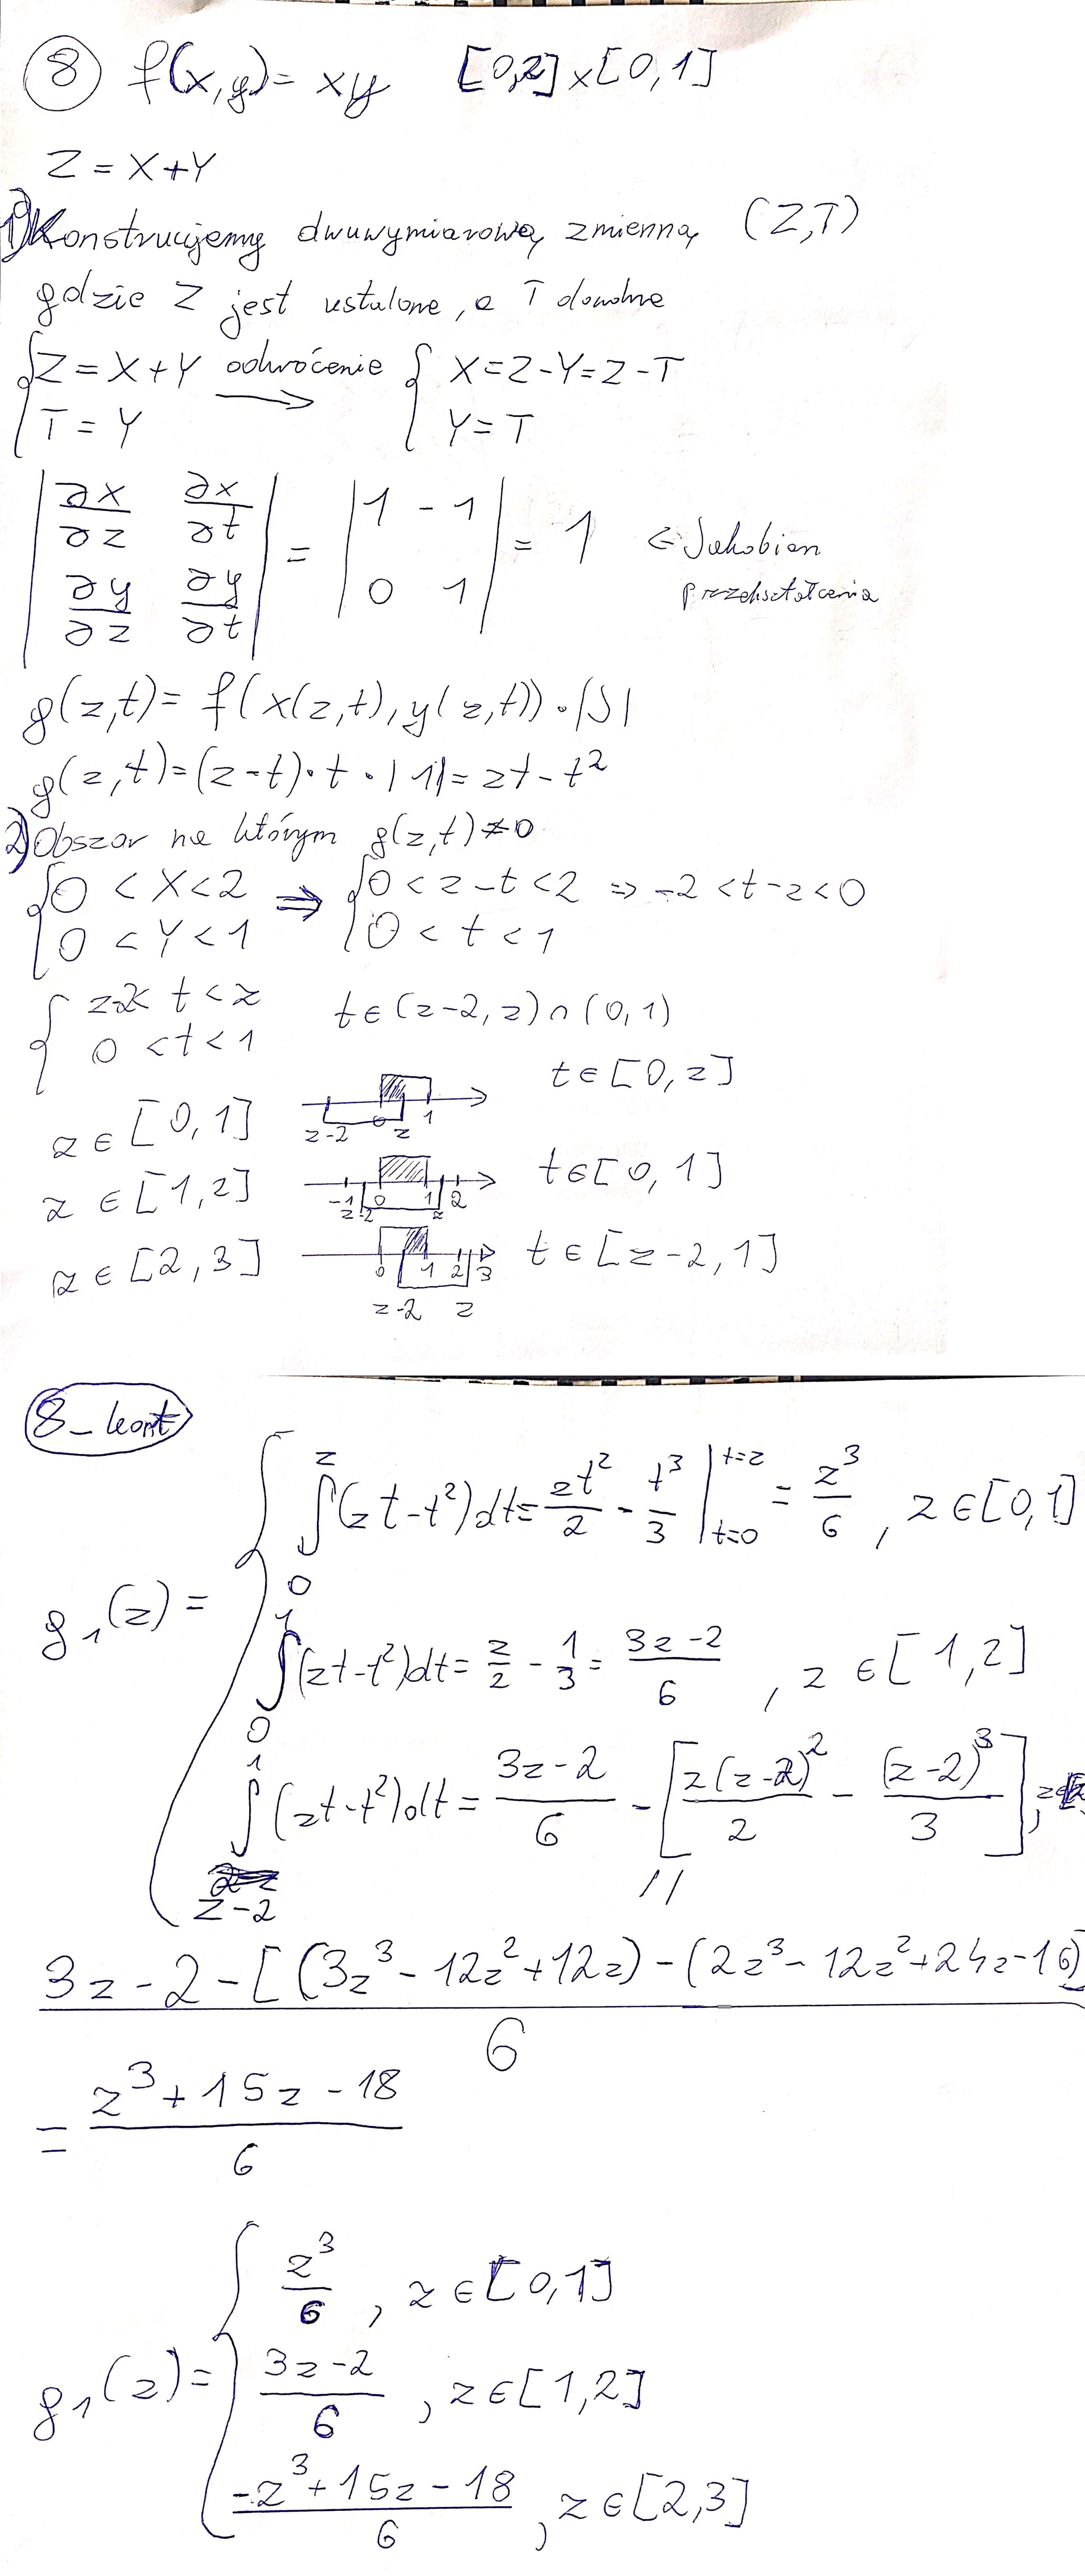 8 f(x,y)= xy [0,2]×[0,1]
Z = X+Y
1) Konstruujemy dwuwymiarową zmienną (Z,T)
gdzie Z jest ustalone, a T dowolne
{Z = X+Y odwrócenie → {X=Z-Y=Z-T
T = Y Y=T
|∂x/∂z ∂x/∂t| = |1 -1| = 1 ⇐ Jakobian
|∂y/∂z ∂y/∂t| |0 1| przekształcenia
g(z,t)= f(x(z,t),y(z,t))·|J|
g(z,t)=(z-t)·t·|1|= zt-t²
2) Obszar na którym g(z,t)≠0
{0 < X<2 ⇒ {0<z-t<2 ⇒ -2<t-z<0
0 < Y < 1 0 < t < 1
{z-2< t<z t∈(z-2,z)∩(0,1)
0 <t<1
z∈[0,1] z-2 0 z 1 t∈[0,z]
z∈[1,2] -1 z-2 0 1 z 2 t∈[0,1]
z∈[2,3] 0 1 2 3 t∈[z-2,1]
z-2 z
8-kont
g₁(z)= { ∫₀^z(zt-t²)dt= zt²/2 - t³/3 |t=z t=0 = z³/6 , z∈[0,1]
∫₀¹(zt-t²)dt= z/2 - 1/3 = 3z-2/6 , z∈[1,2]
∫_{z-2}¹(zt-t²)dt= 3z-2/6 - [z(z-2)²/2 - (z-2)³/3],
||
3z-2-[(3z³-12z²+12z)-(2z³-12z²+24z-16)]/6
= z³+15z-18/6
g₁(z)= { z³/6 , z∈[0,1]
3z-2/6 , z∈[1,2]
-z³+15z-18/6 , z∈[2,3]